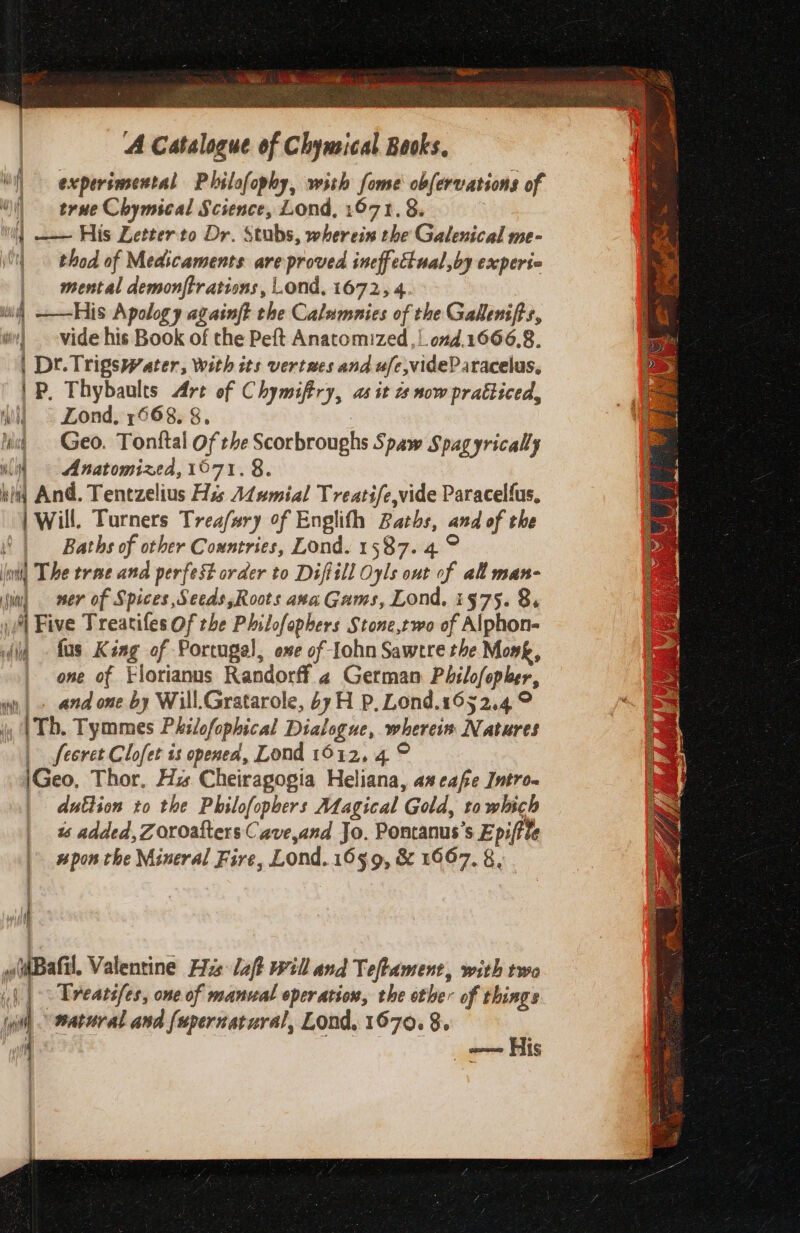 A Catalogue of Chymical Books.
experimental Philoſophy, with ſome obſervations of
true Chymical Science, Lond, 1671. 8.
—— His Letter to Dr. Stubs, wherein the Galenical me-
thod of Medicaments are proved ineffectual, by experi-
mental demonſtrations, Lond. 1672, 4.
——His Apology againſt the Calumnies of the Galleniſts,
vide his Book of the Peſt Anatomized, Lond. 1666.8.
Dr. Trigs Water, with its vertues and uſe, vide Paracelus.
P. Thybaults Art of Chymiſtry, as it is now practiced,
Lond, 1668. 8.
Geo. Tonſtal Of the Scorbroughs Spaw Spagyrically
Anatomized, 1671. 8.
And. Tentzelius His Mumial Treatiſe, vide Paracelſus.
Will. Turners Treaſury of Engliſh Baths, and of the
Baths of other Countries, Lond. 1587. 4 °
The true and perfect order to Diſtill Oyls out of all man-
ner of Spices, Seeds, Roots and Gums, Lond. 1575. 8.
Five Treatiſes Of the Philoſophers Stone, two of Alphon-
ſus King of Portugal, one of Iohn Sawtre the Monk,
one of Florianus Randorff a German Philoſopher,
and one by Will. Gratarole, by H P. Lond. 1652. 4 °
Th. Tymmes Philoſophical Dialogue, wherein Natures
ſecret Cloſet is opened, Lond 1612. 4 °
Geo, Thor. His Cheiragogia Heliana, an eaſie Intro-
duction to the Philoſophers Magical Gold, to which
is added, Zoroaſters Cave, and Jo. Pontanus's Epiſtle
upon the Mineral Fire, Lond. 1659, & 1667. 8.
Baſil. Valentine His laſt Will and Teſtament, with two
Treatiſes, one of manual operation, the other of things
natural and ſupernatural, Lond. 1670. 8.
—— His